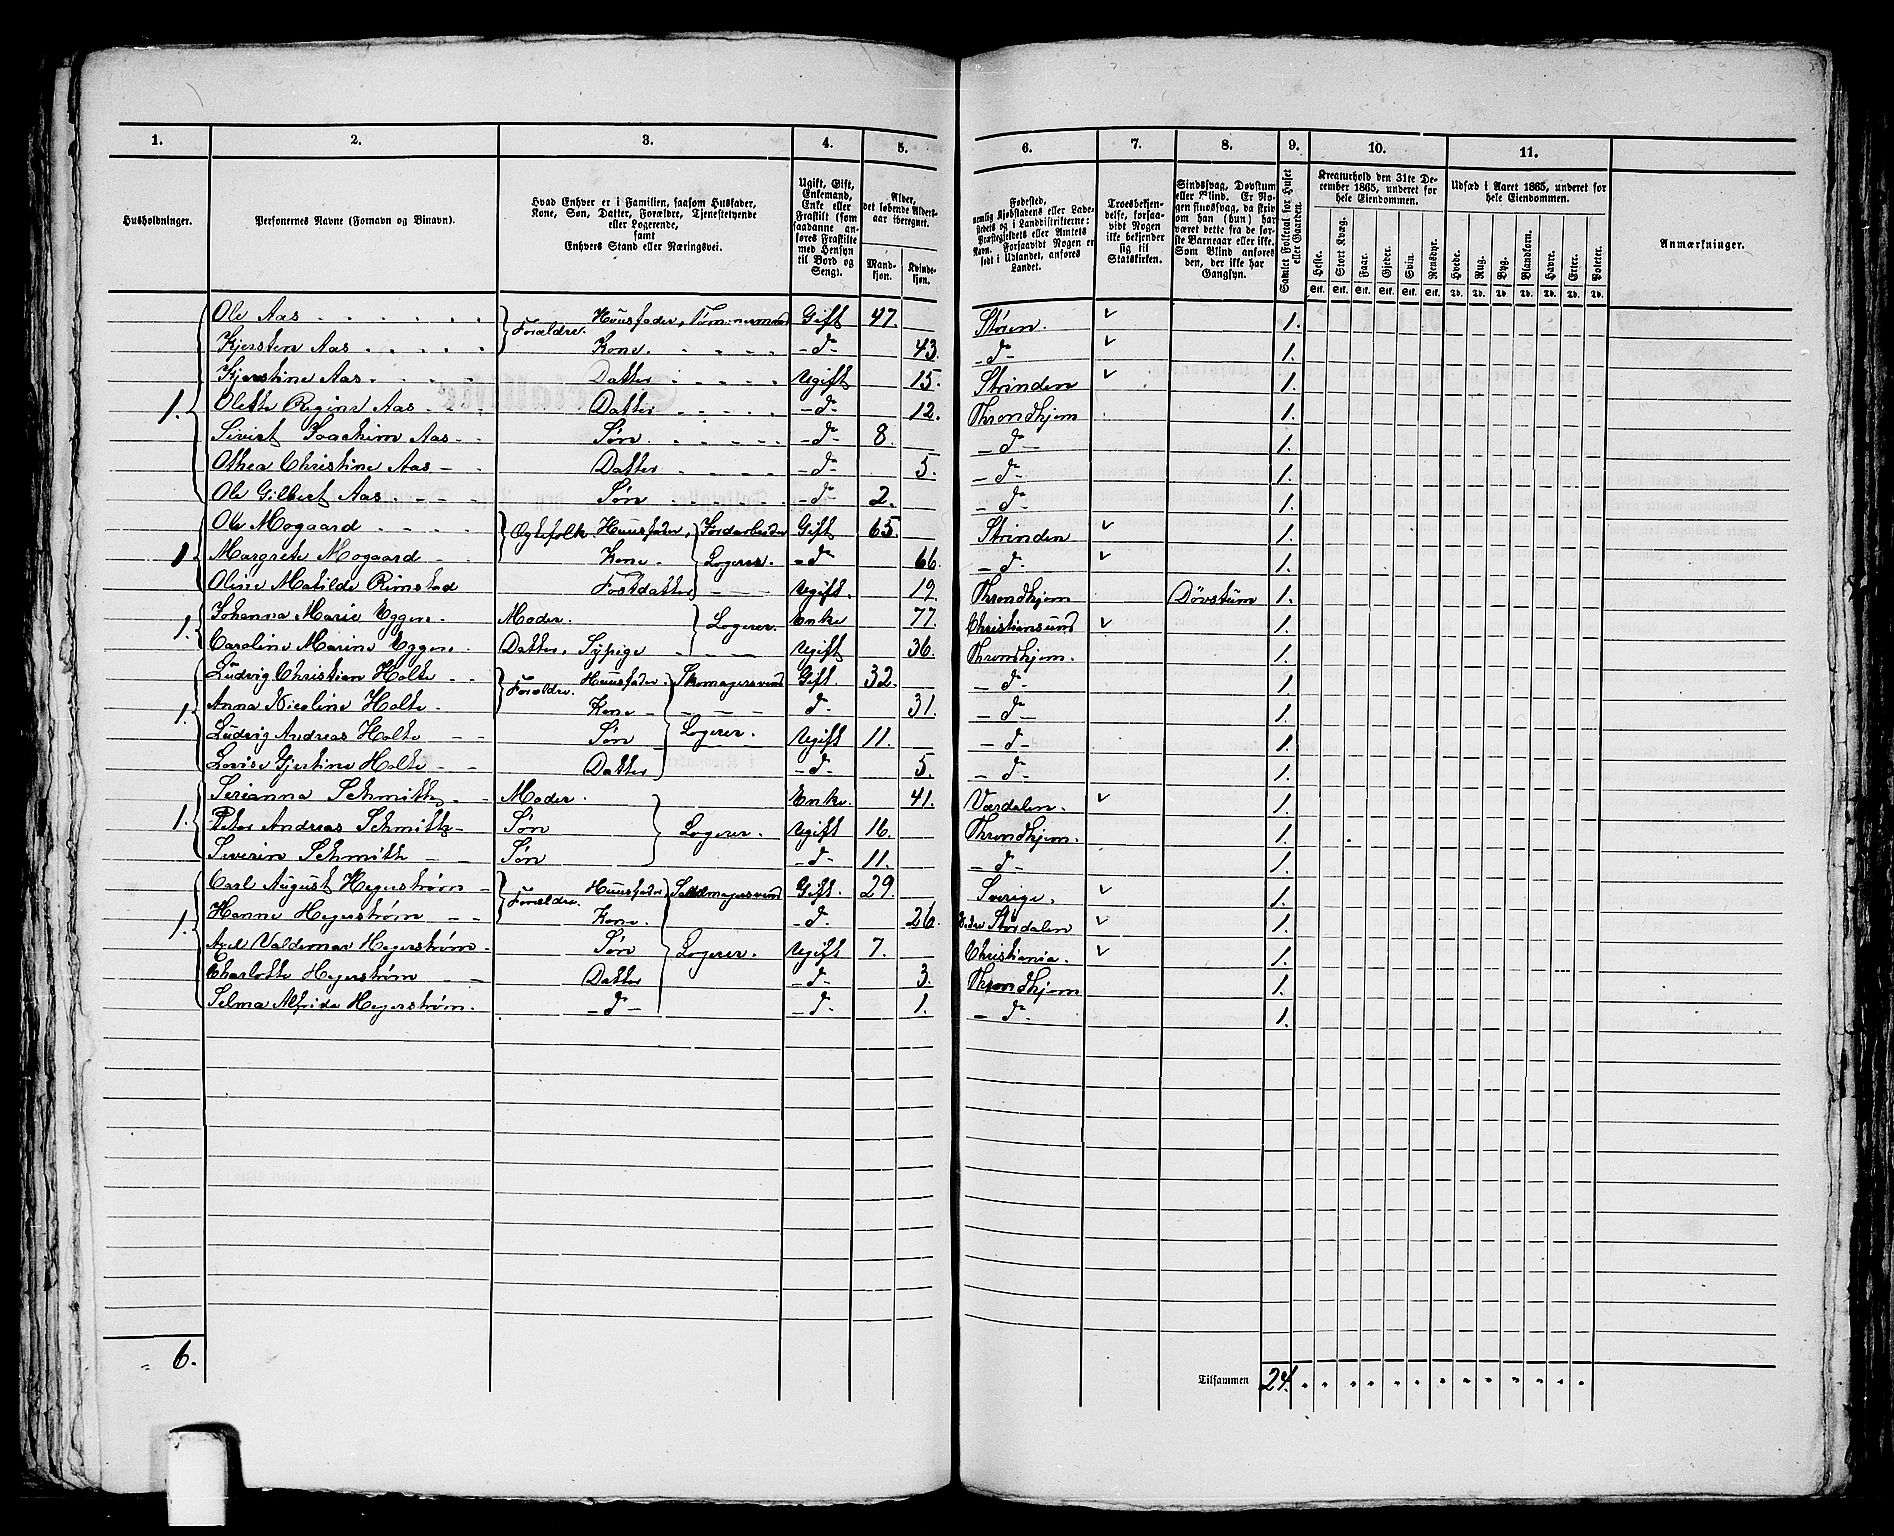 1. 2. 3. 4. 5. 6. 7. 8. 9. 10. 11.
Husholdninger.
Personernes Navne (Fornavn og Binavn).
Hvad Enhver er i Familien, saasom Husfader,
Kone, Søn, Datter, Forældre, Tjenestetyende
eller Logerende,
samt
Enhvers Stand eller Næringsvei.
Ugift, Gift,
Enkemand,
Enke eller
Fraskilt (som
saadanne an-
føres Fraskilte
med Hensyn
til Bord og
Seng).
Alder,
det løbende Alders-
aar iberegnet.
Mand-
kjøn.
Kvinde-
kjøn.
Fødested,
nemlig Kjøbstadens eller Lade-
stedets og i Landdistrikterne:
Præstegjeldets eller Amtets
Navn. Forsaavidt Nogen er
født i Udlandet, anføres
Landet.
Troesbekjen-
delse, forsaa-
vidt Nogen
ikke bekjender
sig til
Statskirken.
Sindssvag, Døvstum
eller Blind. Er No-
gen sindssvag, da skriv
om han (hun) har
været dette fra de før-
ste Barneaar eller ikke.
Som Blind anføres
den, der ikke har
Gangsyn.
Samlet Folketal for Huset
eller Gaarden.
Kreaturhold den 31te De-
cember 1865, underet for
hele Eiendommen.
Heste. Stort Kvæg. Faar. Gjeder. Svin. Rensdyr.
Stk. Stk. Stk. Stk. Stk. Stk.
Udsæd i Aaret 1865, underet for
hele Eiendommen.
Hvede. Rug. Byg. Blandkorn. Havre. Erter. Poteter.
Td. Td. Td. Td. Td. Td. Td.
Anmærkninger.
Ole Aas Forældre. Huusfader, Tømmermand Gift 47. Støren. 1.
Kjersten Aas Kone. -d- 43. -d- 1.
Kjerstine Aas Datter Ugift 15. Strinden 1.
1. Olette Regine Aas Datter -d- 12. Throndhjem 1.
Sivert Joachim Aas Søn -d- 8. -d- 1.
Othea Christine Aas Datter -d- 5. -d- 1.
Ole Gilbert Aas Søn -d- 2. -d- 1.
Ole Mogaard Egtefolk Huusfader, Jordarbeider Gift 65. Strinden 1.
1. Margrete Mogaard Kone. Logerer. -d- 66. -d- 1.
Oline Matilde Rimstad Fostdatter Ugift. 19 Throndhjem Døvstum 1.
Johanna Marie Eggen Moder. Logerer. Enke 77. Christiansund 1.
1. Caroline Marine Eggen Datter, Sypige Ugift 36. Throndhjem. 1.
Ludvig Christian Holte Forældre. Huusfader. Skomagersvend Gift 32. -d- 1.
1. Anna Nicoline Holte Kone d- 31. -d- 1.
Ludvig Andreas Holte Søn Logerer. Ugift 11. -d- 1.
Lovise Gjertine Holte Datter -d- 5. -d- 1.
Serianna Schmith Moder. Enke. 41. Værdalen. 1.
1. Peter Andreas Schmith Søn Logerer. Ugift 16. Throndhjem. 1.
Severin Schmith Søn -d- 11. -d- 1.
Carl August Hegerstrøm Forældre. Huusfader Sadelmagersvend Gift. 29. Sverige. 1.
1. Hanne Hegerstrøm Kone. -d- 26. Nedre Stordalen 1.
Axel Valdemar Hegerstrøm Søn Logerer. Ugift 7. Christiania. 1.
Charlotte Hegerstrøm Datter -d- 3. Throndhjem 1.
Selma Alfride Hegerstrøm. -d- -d- 1. -d- 1.
6.
Tilsammen 24.